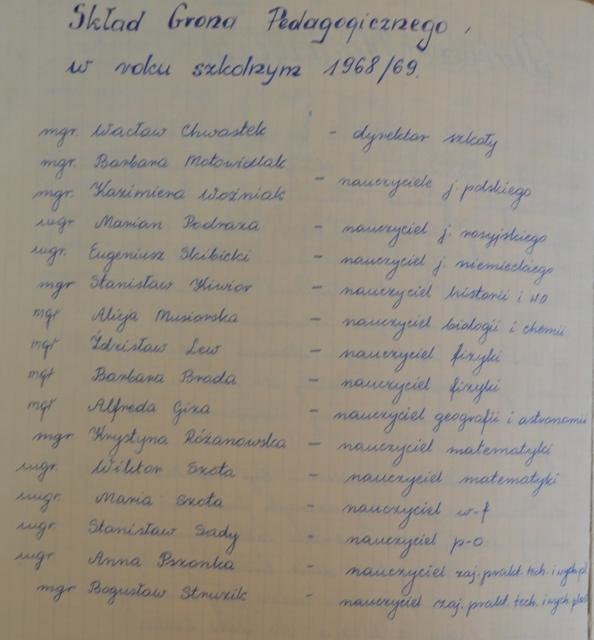 Skład Grona Pedagogicznego,
w roku szkolnym 1968/69.
mgr. Wacław Chwastek - dyrektor szkoły
mgr. Barbara Mołowidlak
mgr. Kazimiera Woźniak - nauczyciele j. polskiego
mgr Marian Podraza - nauczyciel j. rosyjskiego
mgr. Eugeniusz Skibicki - nauczyciel j. niemieckiego
mgr Stanisław Kiwior - nauczyciel historii i WO
mgr Alicja Musiorska - nauczyciel biologii i chemii
mgr Zdzisław Lew - nauczyciel fizyki
mgr Barbara Broda - nauczyciel fizyki
mgr Alfreda Giza - nauczyciel geografii i astronomii
mgr Krystyna Różanowska - nauczyciel matematyki
mgr. Wiktor Szota - nauczyciel matematyki
mgr. Maria Szota - nauczyciel w-f
mgr. Stanisław Sady - nauczyciel p-o
mgr. Anna Pszonka - nauczyciel zaj. prakt. tech. i wych. pl
mgr Bogusław Struzik - nauczyciel zaj. prakt. tech. i wych. plast